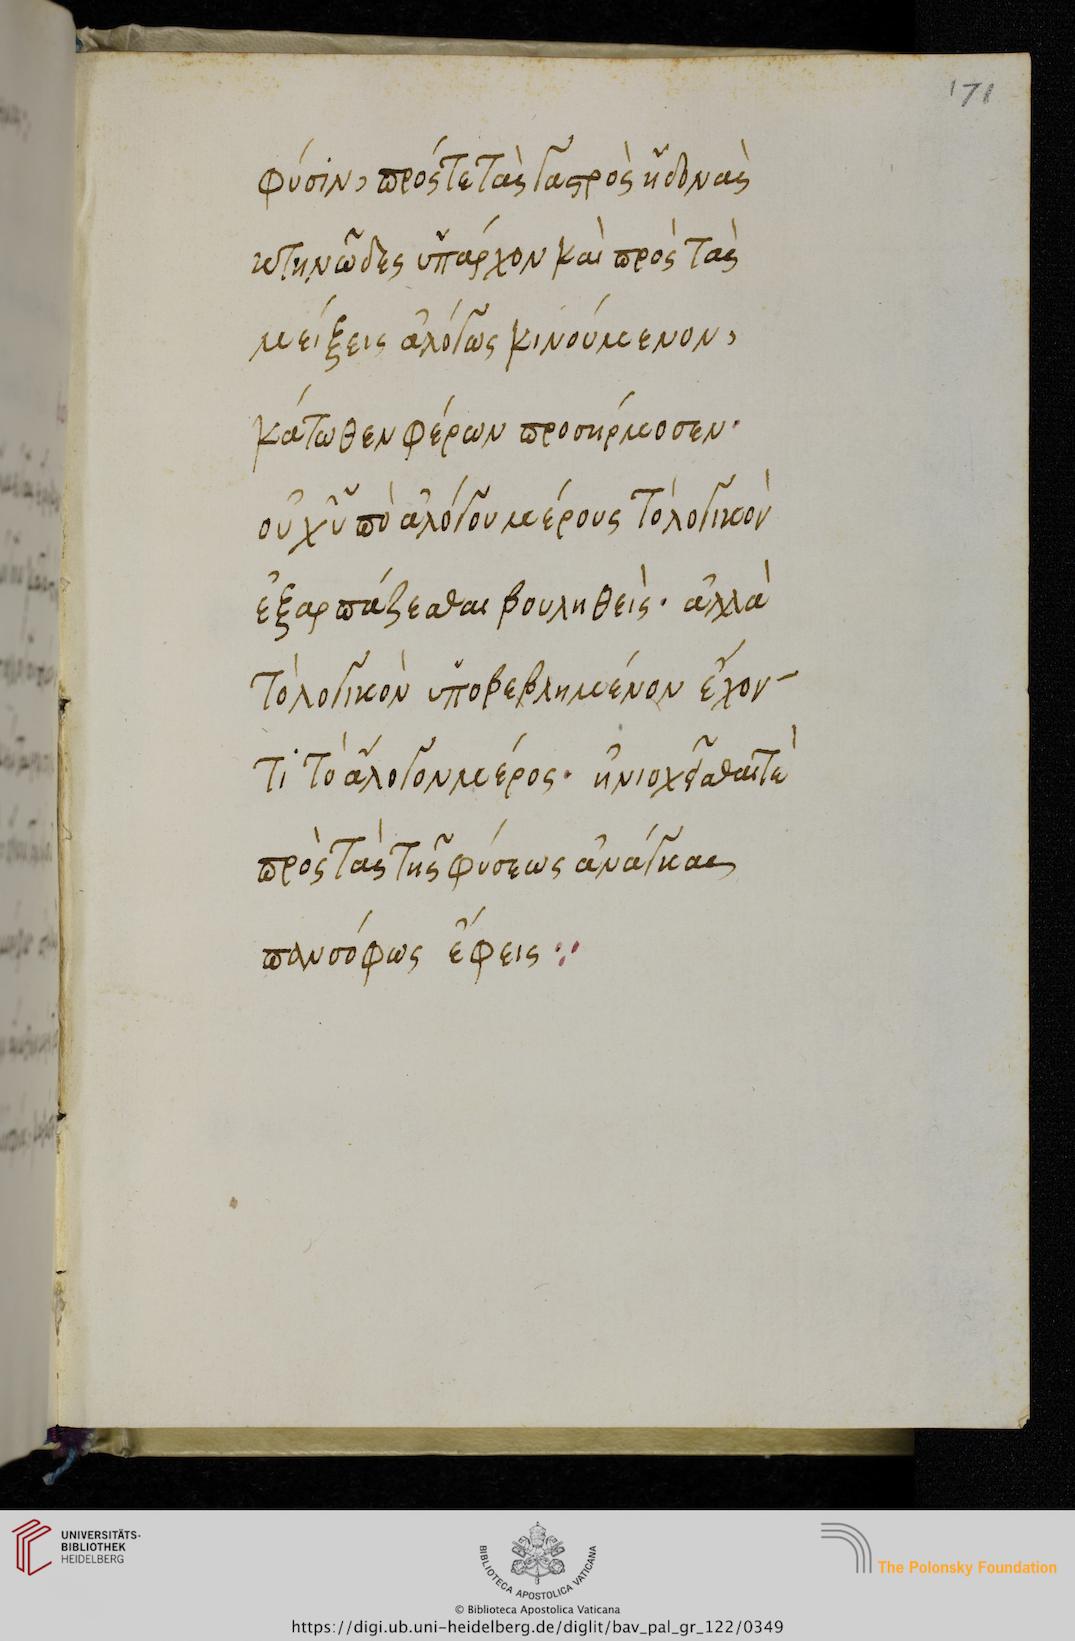 171
φύσιν, πρός τε τὰς γαςρὸς ἡδονὰς
κτηνῶδες ὑπάρχον καὶ πρὸς τὰς
μείξεις ἀλόγως κινούμενον,
κάτωθεν φέρων προσήρμοσεν·
οὐχ ὑπὸ ἀλόγου μέρους τὸ λογικὸν
ἐξαρπάζεσθαι βουληθεὶς· ἀλλὰ
τὸ λογικὸν ὑποβεβλημένον ἔχον-
τι τὸ ἄλογον μέρος· ἡνιοχεῖσθαι τὲ
πρὸς τὰς τῆς φύσεως ἀνάγκας
πανσόφως ἐφεις ⁘
UNIVERSITÄTS-
BIBLIOTHEK
HEIDELBERG
BIBLIOTECA APOSTOLICA VATICANA
The Polonsky Foundation
© Biblioteca Apostolica Vaticana
https://digi.ub.uni-heidelberg.de/diglit/bav_pal_gr_122/0349